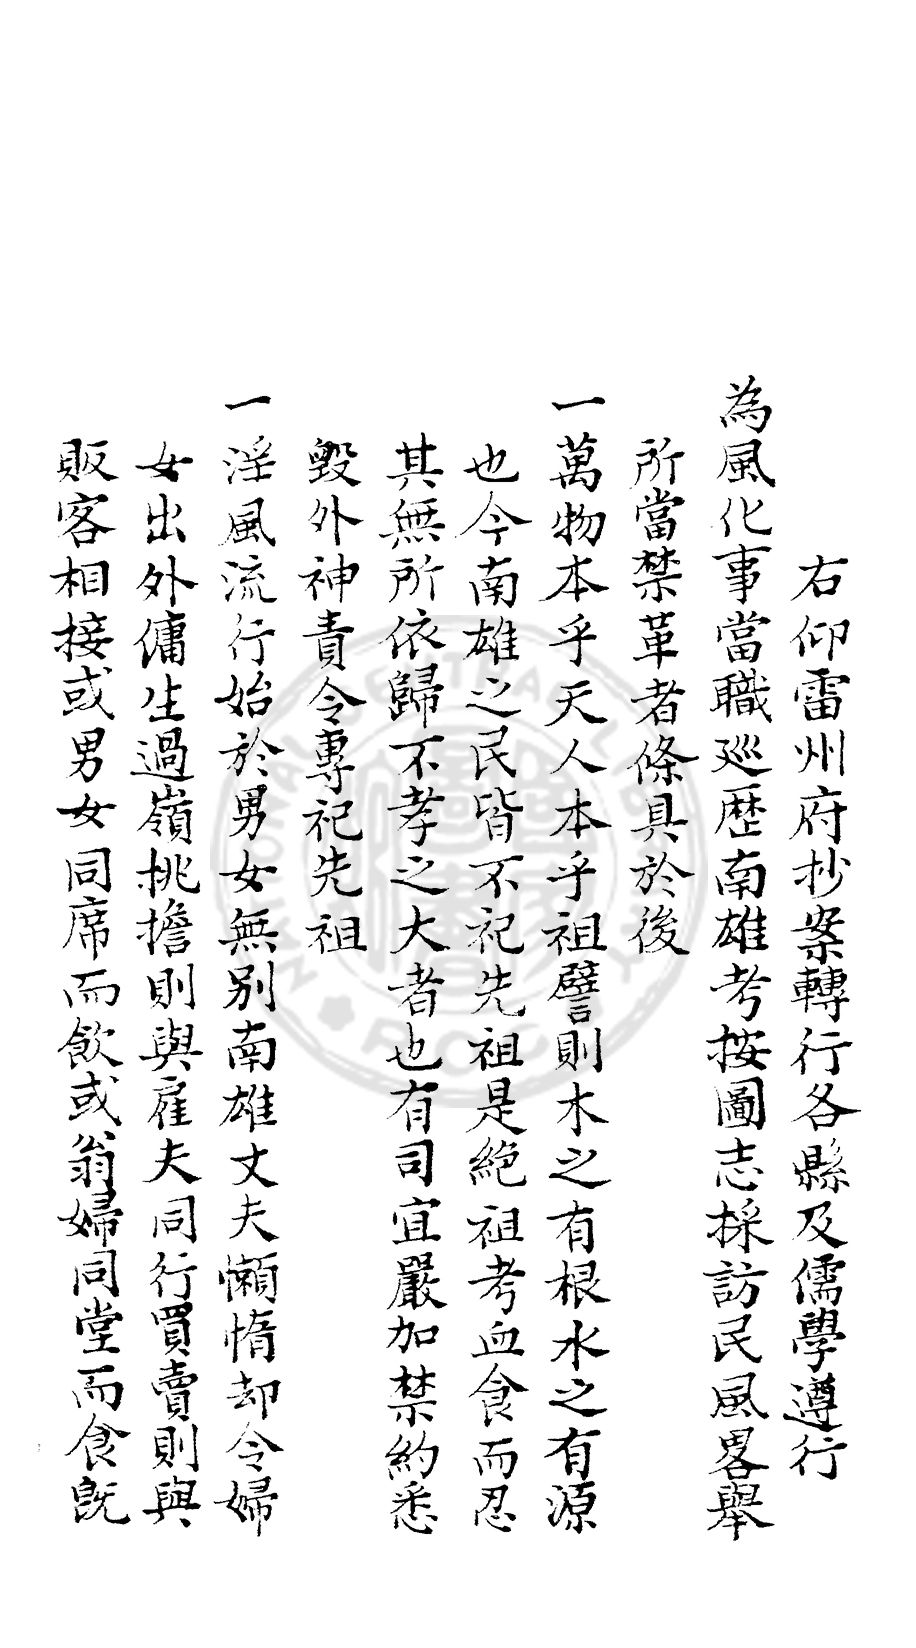 右仰雷州府抄案轉行各縣及儒學遵行
為風化事當職巡歷南雄考按圖志採訪民風畧舉
所當禁革者條具於後
一萬物本乎天人本乎祖譬則木之有根水之有源
也今南雄之民皆不祀先祖是絶祖考血食而忍
其無所依歸不孝之大者也有司宜嚴加禁約悉
毀外神責令專祀先祖
一淫風流行始於男女無别南雄丈夫懶惰却令婦
女出外傭生過嶺挑擔則與雇夫同行買賣則與
販客相接或男女同席而飲或翁婦同堂而食既